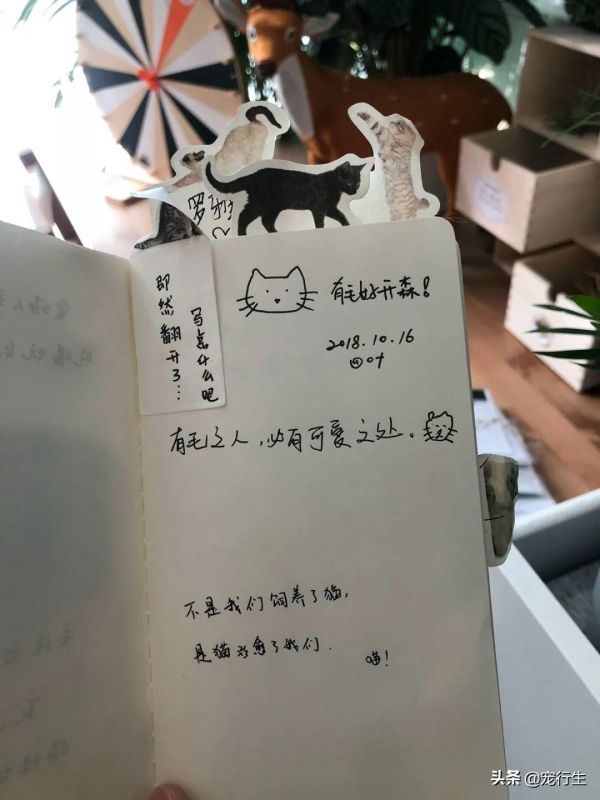 即然翻开了…
写点什么吧
有毛好开森!
2018.10.16
有毛之人,必有可爱之处。
不是我们饲养了猫,
是猫治愈了我们.
喵!
头条 @宠行生